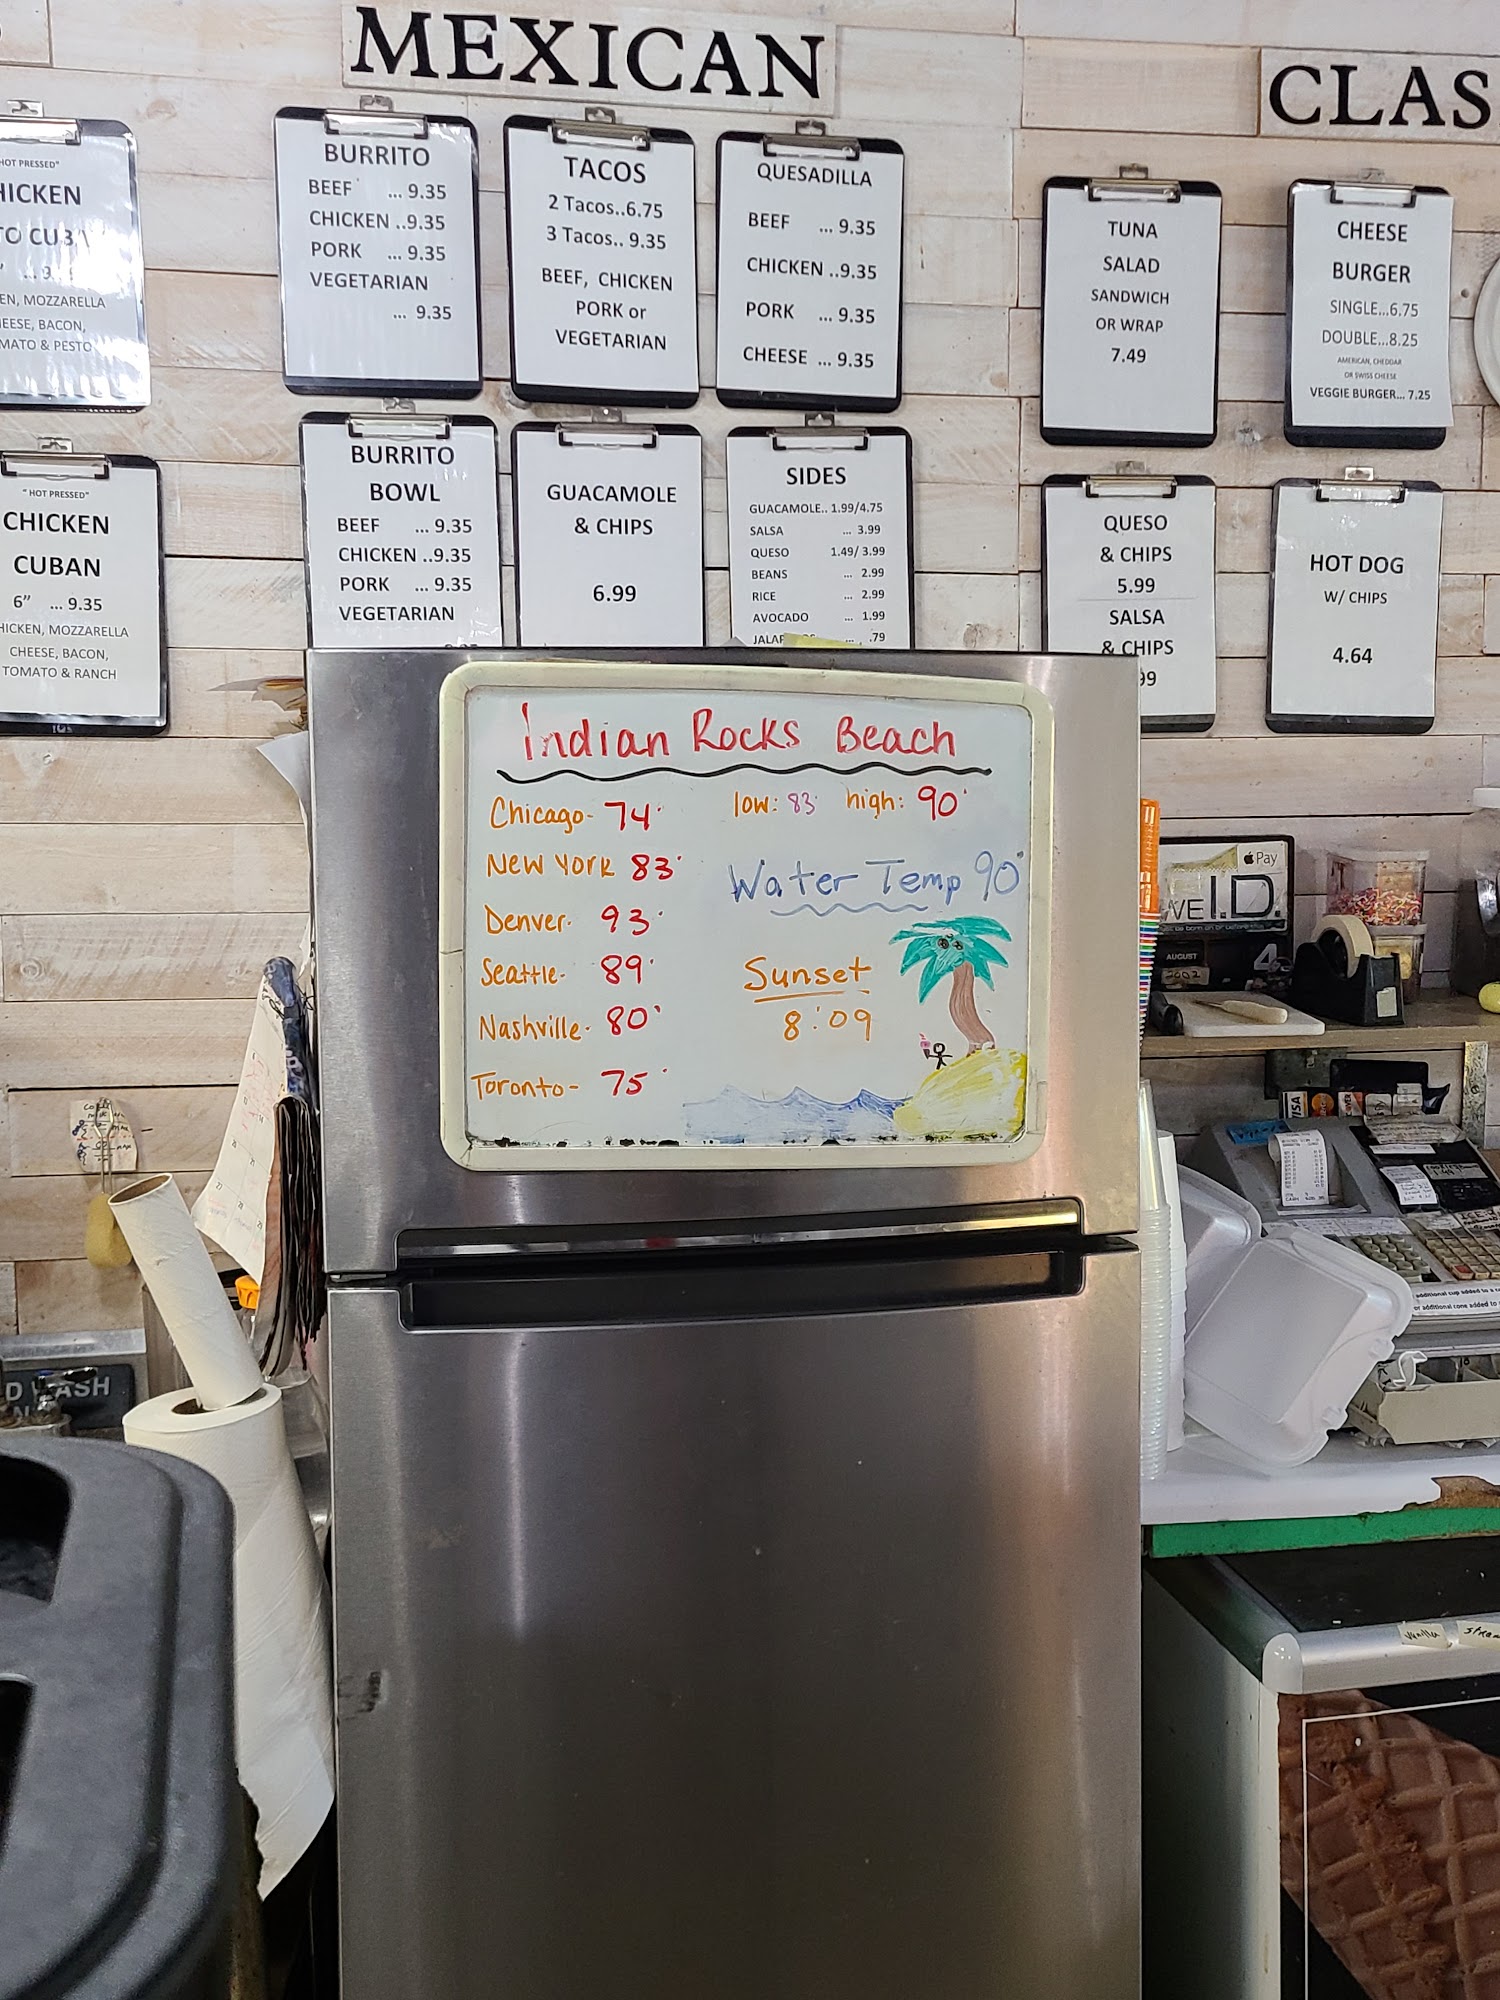 MEXICAN
CLAS
"HOT PRESSED"
HICKEN
... 9.
EN, MOZZARELLA
EESE, BACON,
MATO & PESTO
BURRITO
BEEF ... 9.35
CHICKEN ..9.35
PORK ... 9.35
VEGETARIAN
... 9.35
TACOS
2 Tacos..6.75
3 Tacos.. 9.35
BEEF, CHICKEN
PORK or
VEGETARIAN
QUESADILLA
BEEF ... 9.35
CHICKEN ..9.35
PORK ... 9.35
CHEESE ... 9.35
TUNA
SALAD
SANDWICH
OR WRAP
7.49
CHEESE
BURGER
SINGLE...6.75
DOUBLE...8.25
AMERICAN, CHEDDAR
OR SWISS CHEESE
VEGGIE BURGER... 7.25
"HOT PRESSED"
CHICKEN
CUBAN
6" ... 9.35
HICKEN, MOZZARELLA
CHEESE, BACON,
TOMATO & RANCH
BURRITO
BOWL
BEEF ... 9.35
CHICKEN ..9.35
PORK ... 9.35
VEGETARIAN
GUACAMOLE
& CHIPS
6.99
SIDES
GUACAMOLE.. 1.99/4.75
SALSA ... 3.99
QUESO 1.49/ 3.99
BEANS ... 2.99
RICE ... 2.99
AVOCADO ... 1.99
JALAP ... .79
QUESO
& CHIPS
5.99
SALSA
& CHIPS
99
HOT DOG
W/ CHIPS
4.64
Indian Rocks Beach
Chicago- 74°
New York 83°
Denver- 93°
Seattle- 89°
Nashville- 80°
Toronto- 75°
low: 83° high: 90°
Water Temp 90°
Sunset
8:09
Pay
VE I.D.
AUGUST 4
2002
VISA
D WASH
additional cup added to a c
or additional cone added to
vanilla